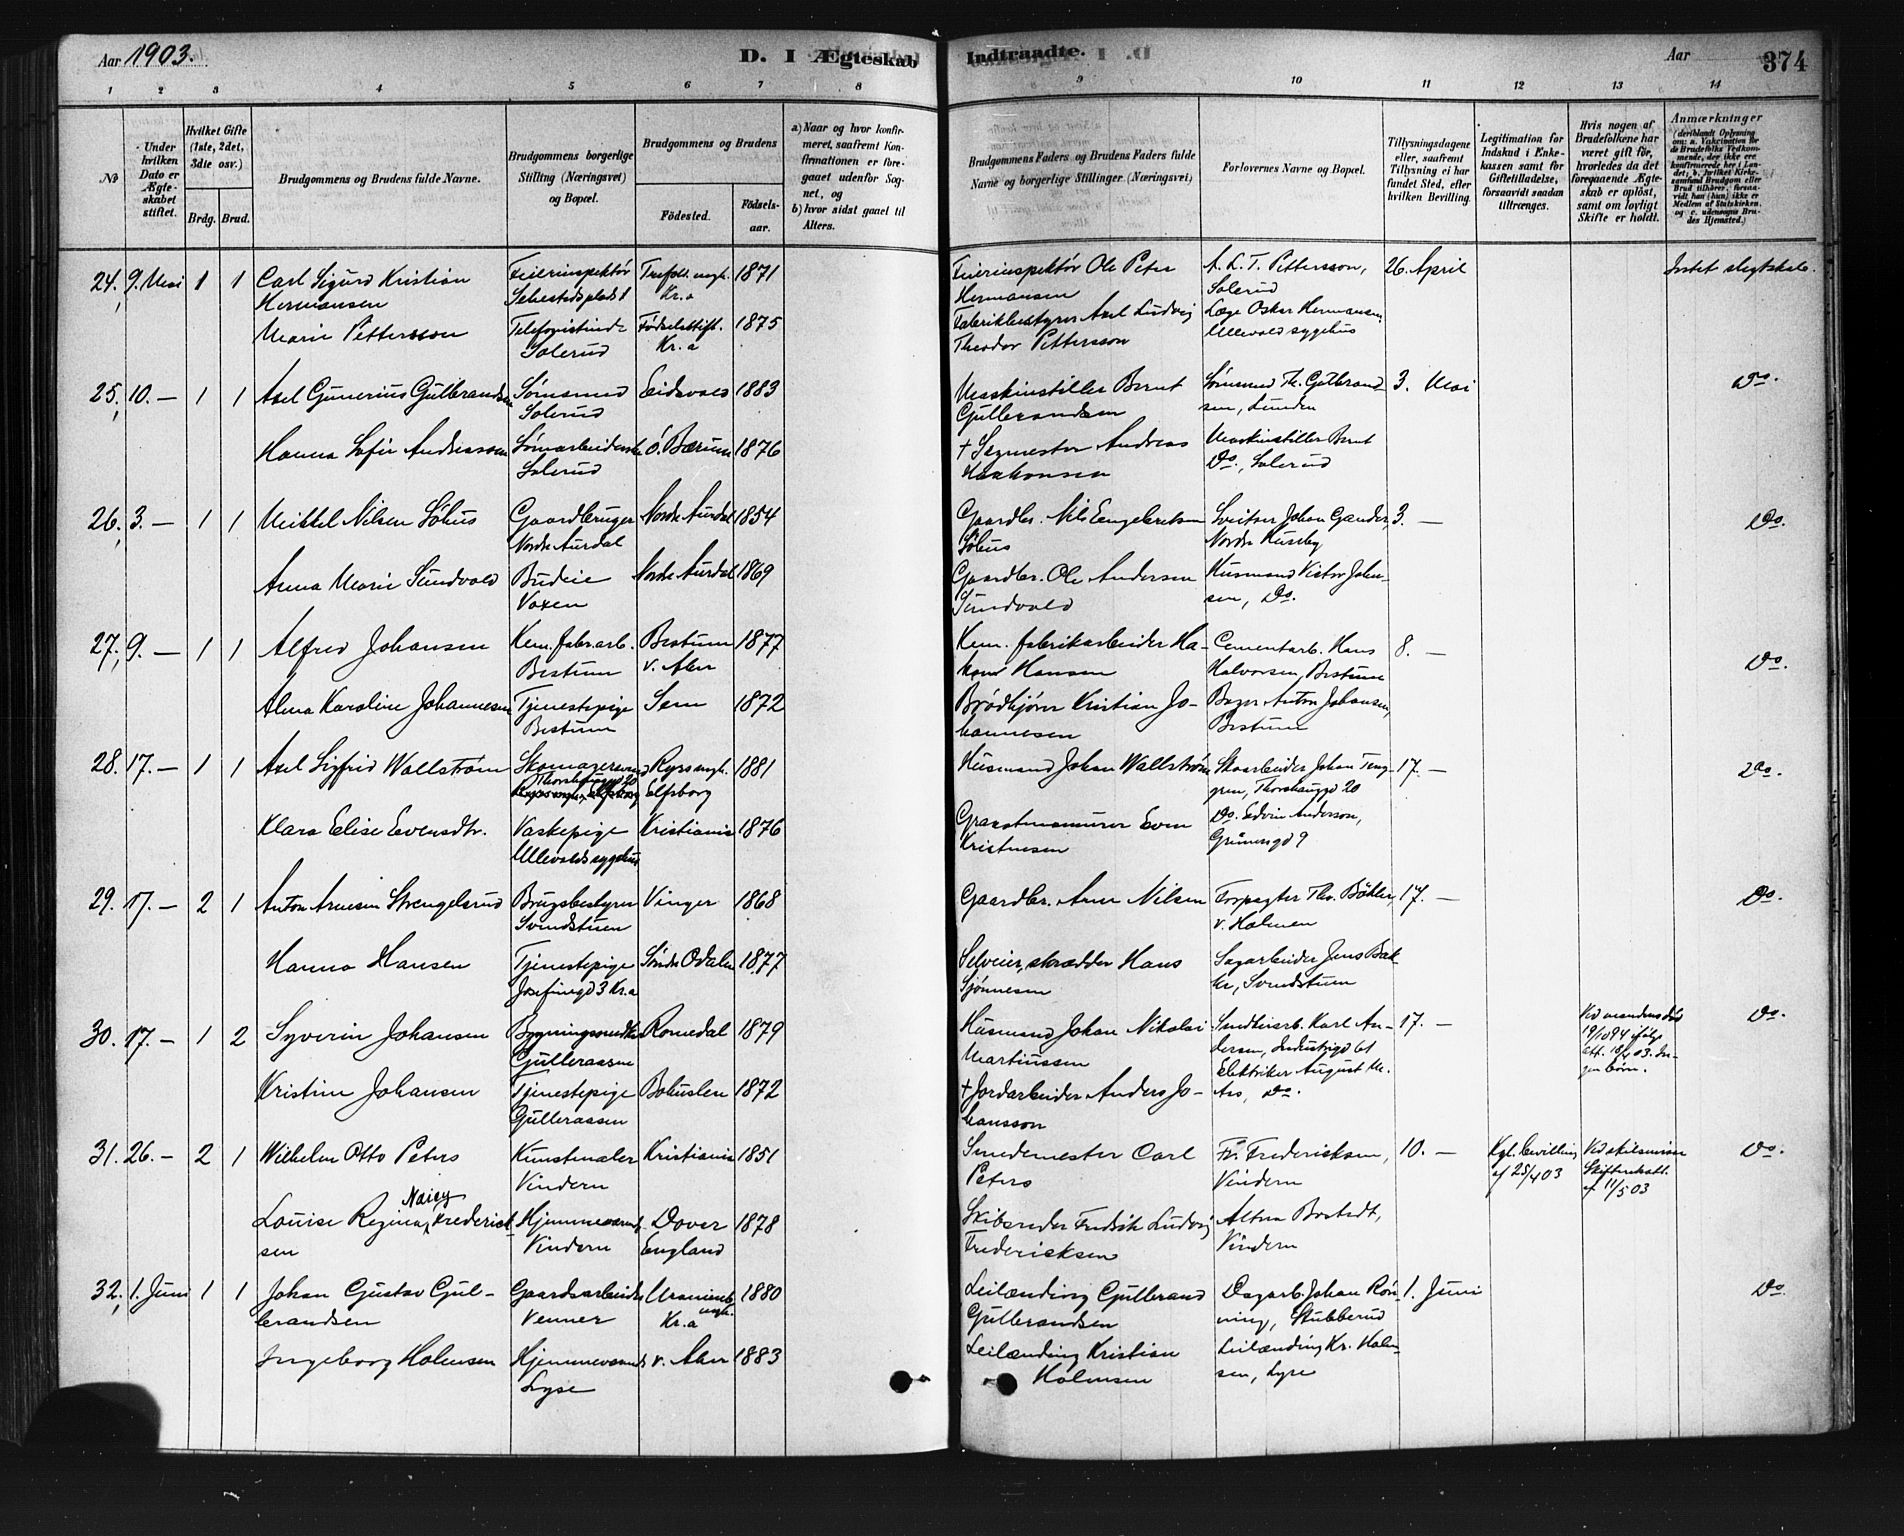 Aar 1903.
D. I Ægteskab Indtraadte.
Aar
374
1 2 3 4 5 6 7 8 9 10 11 12 13 14
No
Under hvilken Dato er Ægteskabet stiftet.
Hvilket Gifte (1ste, 2det, 3die osv.)
Brdg. Brud.
Brudgommens og Brudens fulde Navne.
Brudgommens borgerlige Stilling (Næringsvei) og Bopæl.
Brudgommens og Brudens
Fødested.
Fødselsaar.
a) Naar og hvor konfirmeret, saafremt Konfirmationen er foregaaet udenfor Sognet, og
b) hvor sidst gaaet til Alters.
Brudgommens Faders og Brudens Faders fulde Navne og borgerlige Stillinger (Næringsvei)
Forlovernes Navne og Bopæl.
Tillysningsdagene eller, saafremt Tillysning ei har fundet Sted, efter hvilken Bevilling.
Legitimation for Indskud i Enkekassen samt for Giftetilladelse, forsaavidt saadan tiltrænges.
Hvis nogen af Brudefolkene har været gift før, hvorledes da det foregaaende Ægteskab er opløst, samt om lovligt Skifte er holdt.
Anmærkninger
24, 9. Mai 1 1 Carl Sigurd Kristian Hermansen
Feierinspektør Sehestedsplads 1
Trefold. mgh. Kr.a 1871
Feierinspektør Ole Peter Hermansen
A. L. T. Pettersson, Solerud
26. April
Intet slegtskab.
Marie Pettersson
Telefonistinde Solerud
Fødselsstift. Kr.a 1875
Fabrikbestyrer Axel Ludvig Theodor Pettersson
Læge Oskar Hermansen, Ullevold sygehus
25, 10. — 1 1 Axel Gunerius Gulbrandsen
Sømsmed Solerud
Eidsvold 1883
Maskinstiller Bernt Gulbrandsen
Sømsmed Th. Gulbrandsen, Lunden
3. Mai
Do.
Hanna Sofie Andreassen
Sømarbeiderske Solerud
Ö. Bærum 1876
+ Sagmester Andreas Haakonsen
Maskinstiller Bernt Do., Solerud
26, 3. — 1 1 Mikkel Nilsen Söhus
Gaardbruger Nordre Aurdal
Nordre Aurdal 1854
Gaardbr. Nils Engebretsen Söhus
Sveitser Johan Gander, Nordre Huseby
3. —
Do.
Anna Marie Sundvold
Budeie Voxen
Nordre Aurdal 1869
Gaardbr. Ole Andersen Sundvold
Husmand Victor Johnsen, Do.
27, 9. — 1 1 Alfred Johansen
Kem. fabr. arb. Bestum
Bestum v. Aker 1877
Kem. fabrikarbeider Hakon Hansen
Cementarb. Hans Halvorsen, Bestum
8. —
Do.
Alma Karoline Johannesen
Tjenestepige Bestum
Sem 1872
Brødkjører Kristian Johannesen
Bager Anton Johansen, Bestum
28. 17. — 1 1 Axel Sigfrid Wallstrøm
Skomagersvend Thorshauggd 20
Ryrs mgh. Elfsborg 1881
Husmand Johan Wallstrøm
Skoarbeider Johan Tengren, Thorshauggd 20
17. —
Do.
Klara Elise Evensdtr.
Vaskepige Ullevolds sygehus
Kristiania 1876
Graastensmurer Even Kristensen
Do. Edvin Anderson, Grünersgd 9
29. 17. — 2 1 Anton Arnesen Strengelsrud
Brugsbestyrer Svendstuen
Vinger 1868
Gaardbr. Arne Nilsen
Forpagter Ths. Böhler, v. Holmen
17. —
Do.
Hanna Hansen
Tjenestepige Josefinegd 3 Kr.a
Söndre Odalen 1877
Selveier, skrædder Hans Sjönnesen
Sagarbeider Jens Bakke, Svendstuen
30. 17. — 1 2 Syverin Johansen
Bygningssnedker Gulleraasen
Romedal 1879
Husmand Johan Nikolai Martinssen
Snedkerarb. Karl Andersen, Industrigd 61
17. —
Ved mandens död 19/10 94 ifølge att. 18/4 03. Ingen börn.
Do.
Kristine Johansen
Tjenestepige Gulleraasen
Bohuslen 1872
+ Jordarbeider Anders Johansson
Elektriker August M. Aas, Do.
31. 26. — 2 1 Wilhelm Otto Peters
Kunstmaler Vindern
Kristiania 1851
Smedemester Carl Peters
Fr. Fredericksen, Vindern
10. —
Kgl. bevilling af 25/4 03
Ved skilsmisse Skifteratt. af 11/5 03
Do.
Louise Regina Naisy Fredericksen
Hjemmeværende Vindern
Dover England 1878
Skibsreder Fredrik Ludvig Fredericksen
Altna Borstedt, Vindern
32, 1. Juni 1 1 Johan Gustav Gulbrandsen
Gaardsarbeider Venner
Uranienb. mgh. Kr.a 1880
Leilænding Gulbrand Gulbrandsen
Dagarb. Johan Rönning, Stubberud
1. Juni
Do
Ingeborg Holmsen
Hjemmeværende Lyse
v. Aker 1883
Leilænding Kristian Holmsen
Leilænding Kr. Holmsen, Lyse